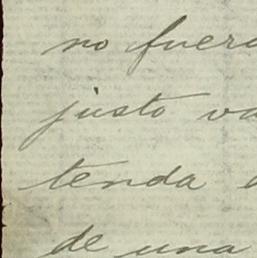 no fuera
justo va
tenda a
de una